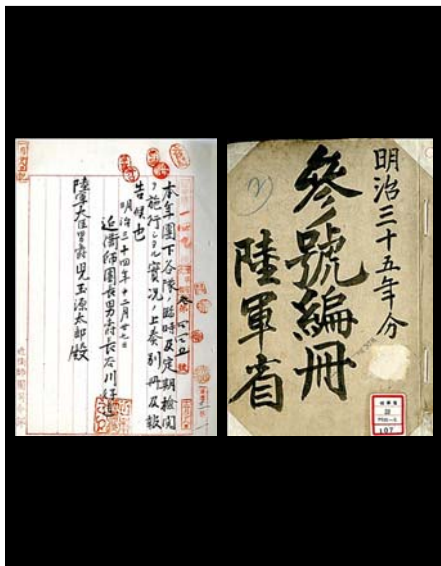 明治三十五年分
參號編冊
陸軍省
107
本年團下各隊ノ臨時及定期檢閲
ヲ施行シタル實況ノ上奏別冊及報
告候也
明治三十四年十二月廿七
近衛師團長男爵長谷川好道
陸軍大臣男爵兒玉源太郎殿